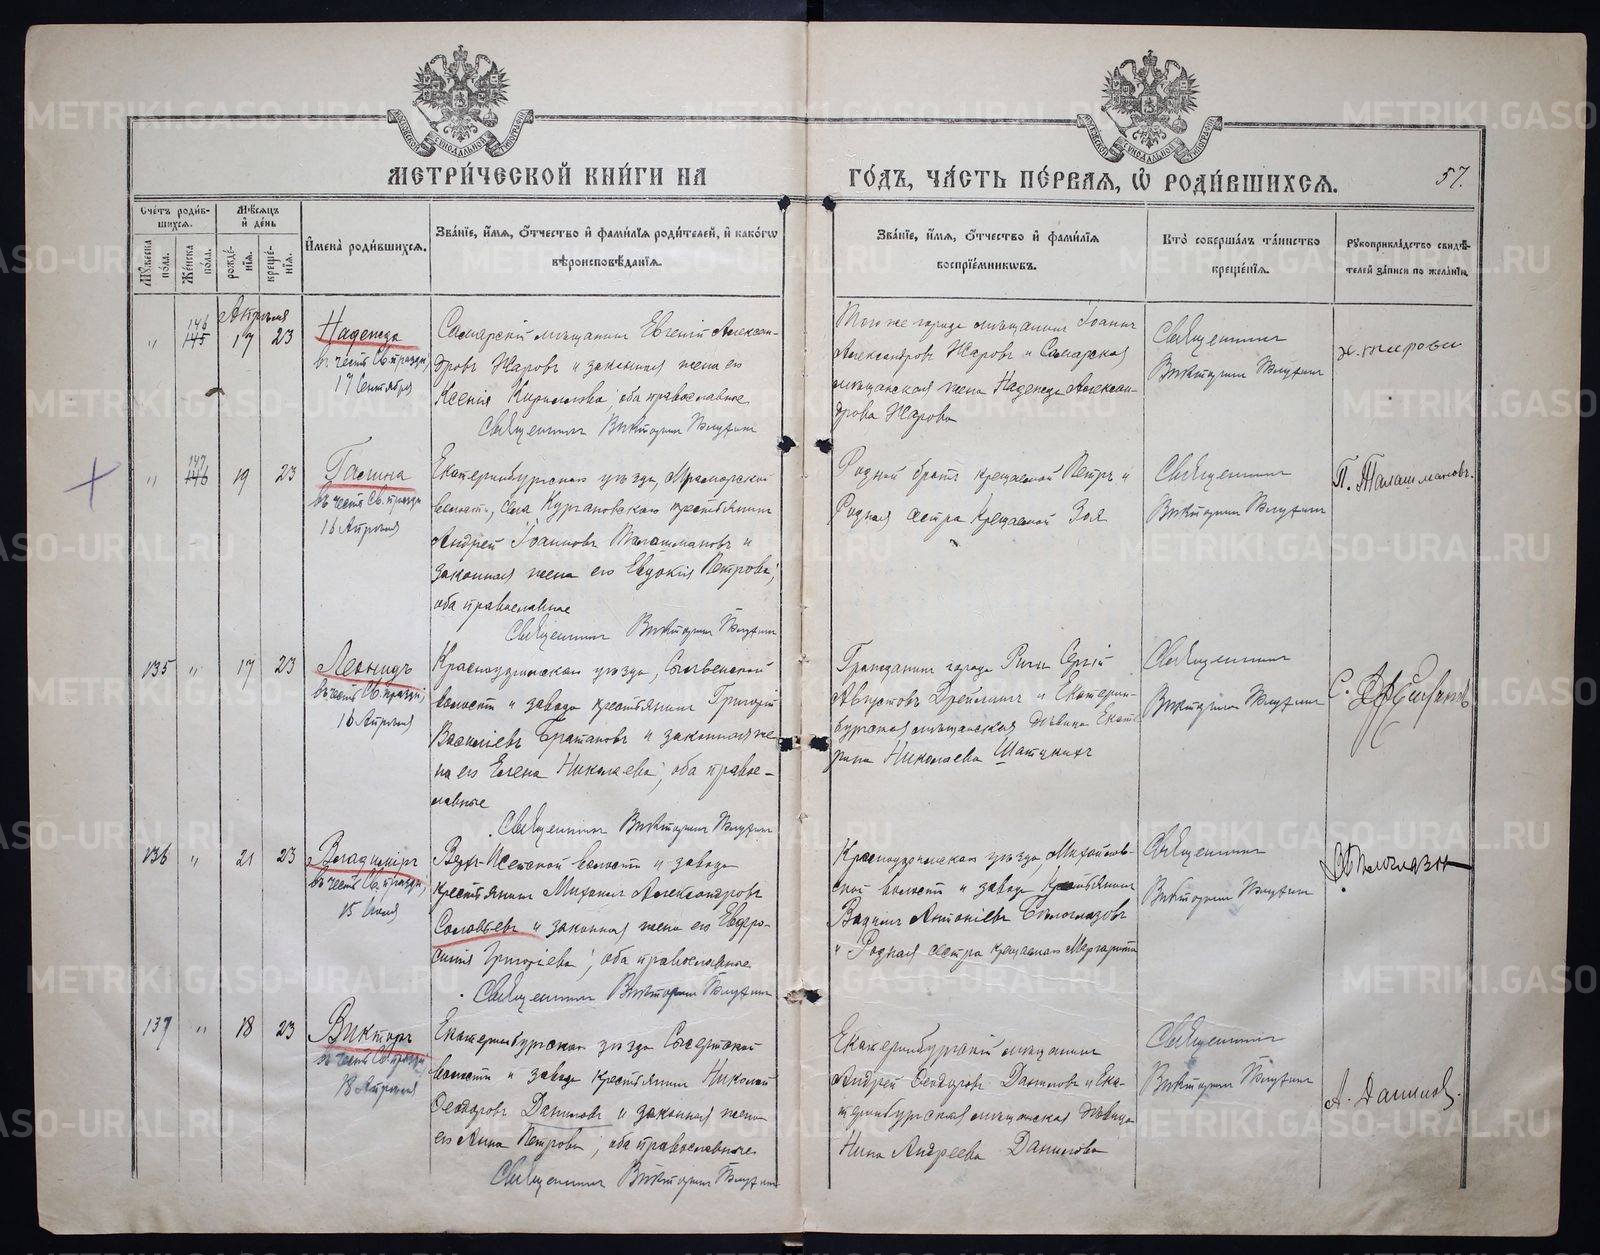 МЕТРИ́ЧЕСКОЙ КНИ́ГИ НА
ГО́ДЪ, ЧА́СТЬ ПЕ́РВАЯ, Ѡ РОДИ́ВШИХСЯ.
57.
Сче́тъ роди́в-
шихся.
Му́жеска
по́ла.
Же́нска
по́ла.
Мѣ́сяцъ
и де́нь
рожде́-
нїя.
креще́-
нїя.
И́мена роди́вшихся.
Зва́нїе, и́мя, о́тчество и фами́лїя роди́телей, и како́гѡ
вѣроисповѣ́данїя.
Зва́нїе, и́мя, о́тчество и фами́лїя
воспрїе́мникѡвъ.
Кто̀ соверша́лъ та́инство
креще́нїя.
Рукоприкла́дство свидѣ́-
телей за́писи по жела́нїю.
Апрѣля
„ 146 145 17 23
Надежда
въ честь Св. празд.
17 Сентября
Самарскій мѣщанинъ Евгеній Алексан-
дровъ Жаровъ и законная жена его
Ксенія Кириллова, оба православные
Священникъ Викторинъ
Того же города мѣщанинъ Іоаннъ
Александровъ Жаровъ и Самарская
мѣщанская жена Надежда Алексан-
дрова Жарова
Священникъ
Викторинъ
„ 147 146 19 23
Галина
въ честь Св. празд.
16 Апрѣля
Екатеринбургскаго уѣзда, Мраморской
волости, села Кургановскаго крестьянинъ
Андрей Іоанновъ Талашмановъ и
законная жена его Евдокія Петрова,
оба православные
Священникъ Викторинъ
Родной братъ крещаемой Петръ и
Родная сестра крещаемой Зоя
Священникъ
Викторинъ
П. Талашмановъ.
135 „ 17 23
Леонидъ
въ честь Св. празд.
16 Апрѣля
Красноуфимскаго уѣзда, Сылвенской
волости и завода крестьянинъ Григорій
Васильевъ Братановъ и законная же-
на его Елена Николаева, оба право-
славные
Священникъ Викторинъ
Гражданинъ города Риги Сергій
Августовъ и Екатерин-
бургская мѣщанская дѣвица Екате
рина Николаева
Священникъ
Викторинъ
136 „ 21 23
Владимиръ
въ честь Св. празд.
15 Іюля
Верх-Исетской волости и завода
крестьянинъ Михаилъ Александровъ
Соловьевъ и законная жена его Евфро-
синія Григорьева, оба православные
Священникъ Викторинъ
Красноуфимскаго уѣзда, Михайлов-
ской волости и завода крестьянинъ
Антоніевъ Бѣлоглазовъ
и Родная сестра крещаемаго Маргарита
Священникъ
Викторинъ
137 „ 18 23
Викторъ
въ честь Св. празд.
18 Апрѣля
Екатеринбургскаго уѣзда Сысертской
волости и завода крестьянинъ Николай
Ѳеодоровъ Даниловъ и законная жена
его Анна Петрова, оба православные
Священникъ Викторинъ
Екатеринбургскій мѣщанинъ
Андрей Ѳеодоровъ Даниловъ и Ека-
теринбургская мѣщанская дѣвица
Нина Андреева Данилова
Священникъ
Викторинъ
А. Даниловъ.
METRIKI.GASO-URAL.RU